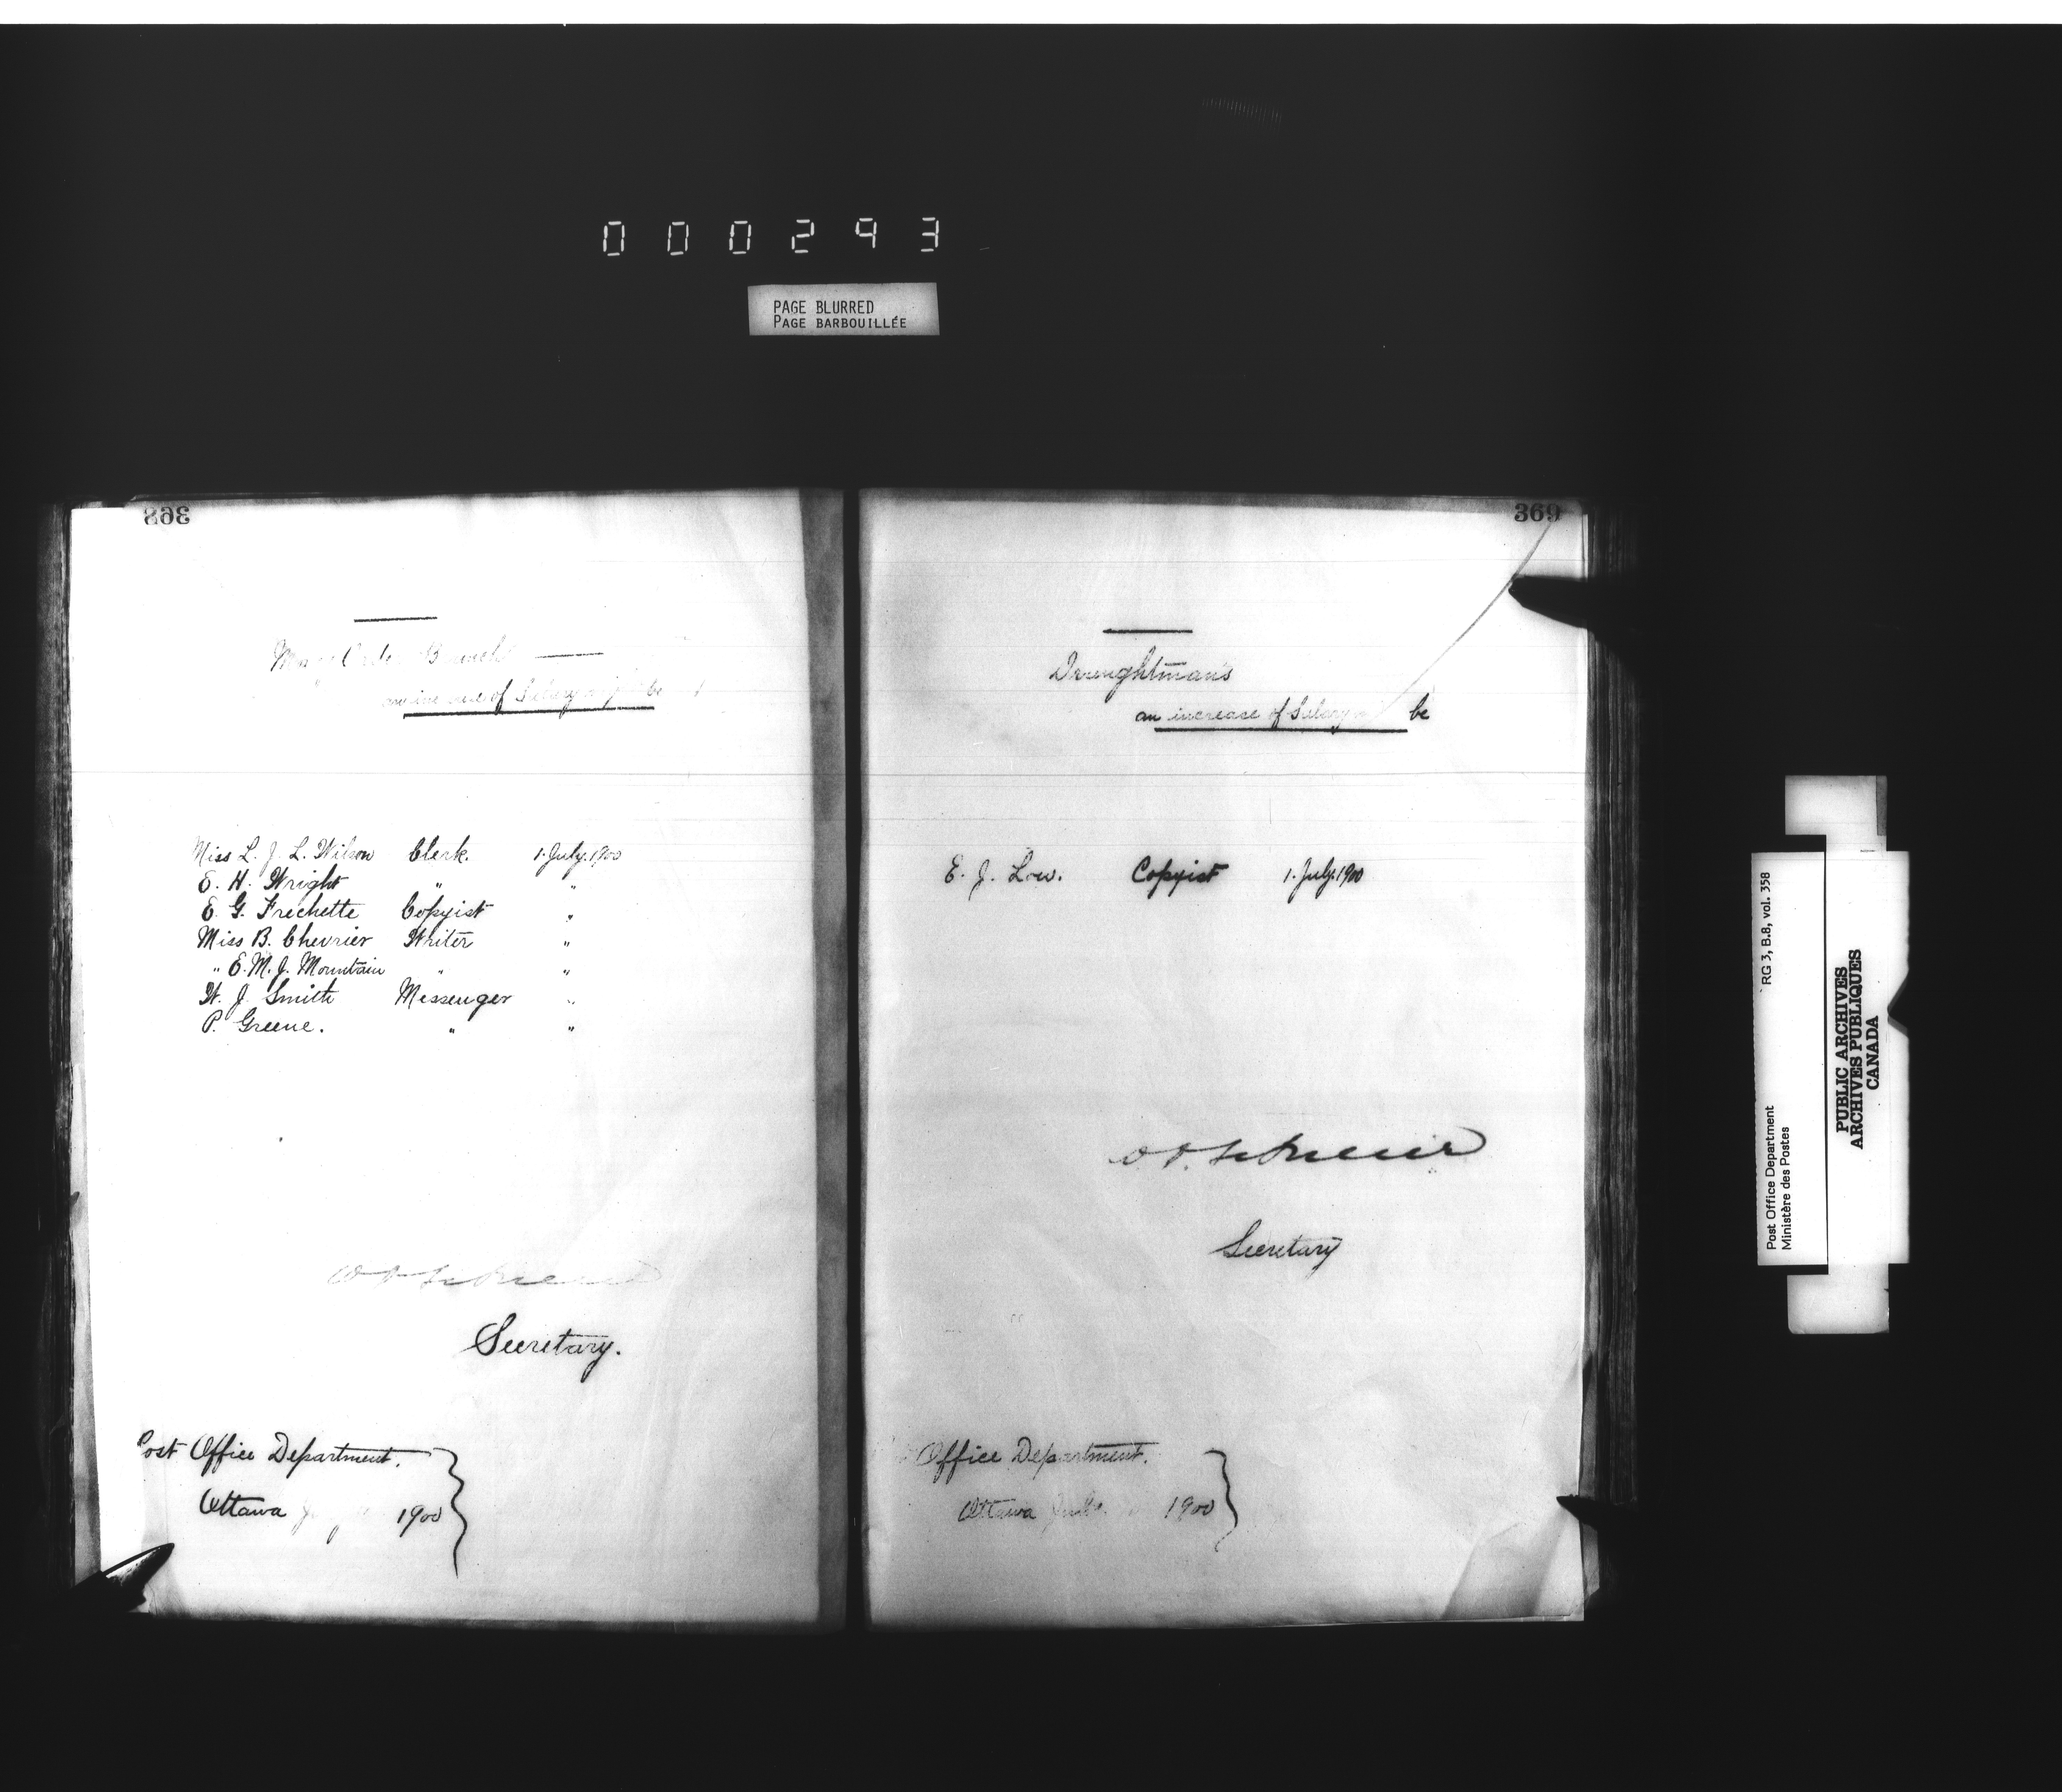 000293
PAGE BLURRED
PAGE BARBOUILLÉE
368
Money Order Branch
an increase of Salary be
Miss L. J. L. Wilson Clerk. 1. July. 1900
E. H. Wright " "
E. G. Frechette Copyist "
Miss B. Chevrier Writer "
" E. M. J. Mountain " "
W. J. Smith Messenger "
P. Greene. " "
Secretary.
Post Office Department.
Ottawa 1900
369
Draughtman's
an increase of Salary be
E. J. Low. Copyist 1. July. 1900
Secretary
Office Department.
Ottawa 1900
RG 3, B.8, vol. 358
Post Office Department
Ministère des Postes
PUBLIC ARCHIVES
ARCHIVES PUBLIQUES
CANADA